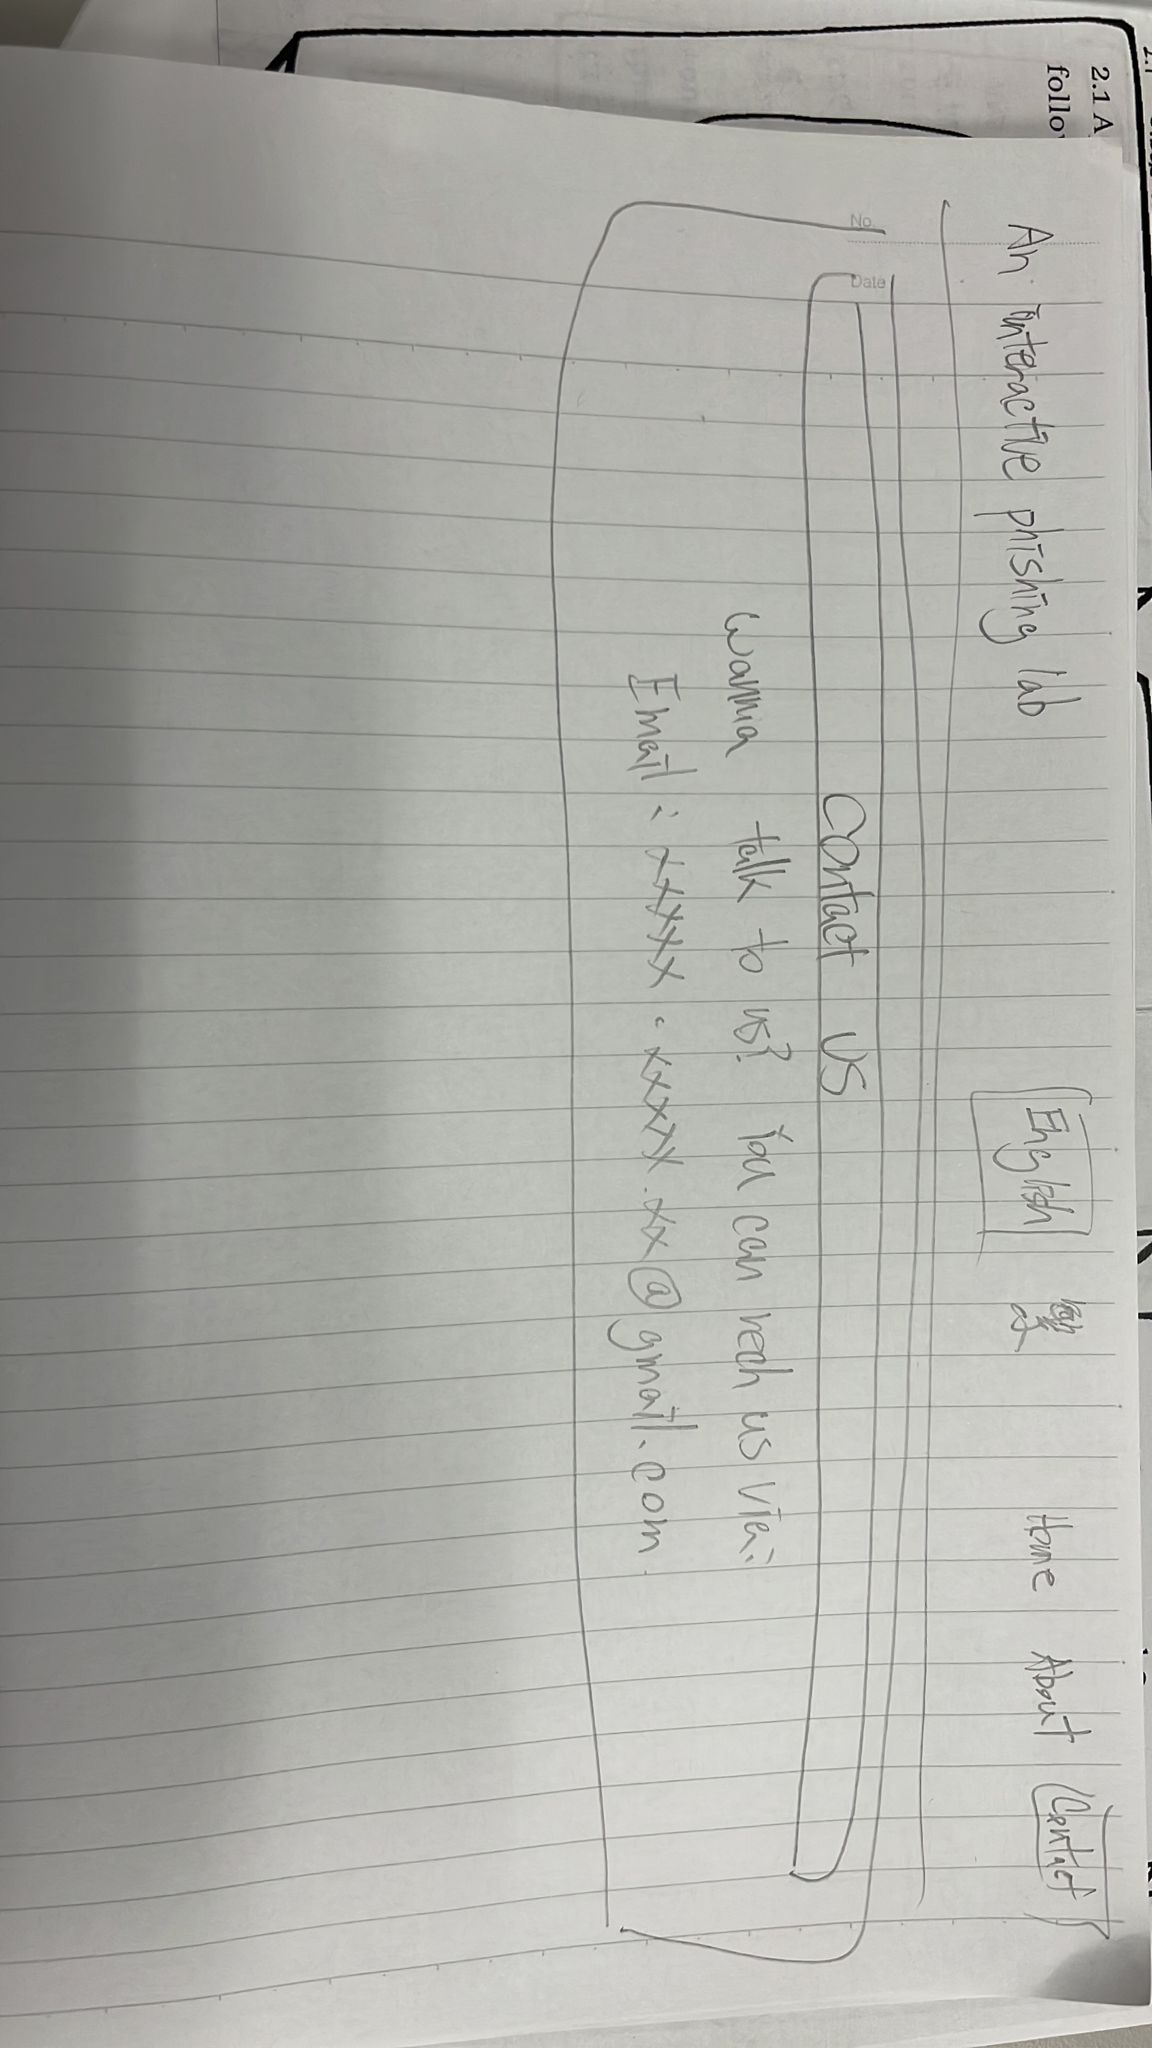 2.1 A
follo
An interactive phishing lab
English
Home
About
Contact
No.
Date
Contact us
Wanna talk to us? You can rech us via:
Email : xxxxx.xxxxx.xx@gmail.com